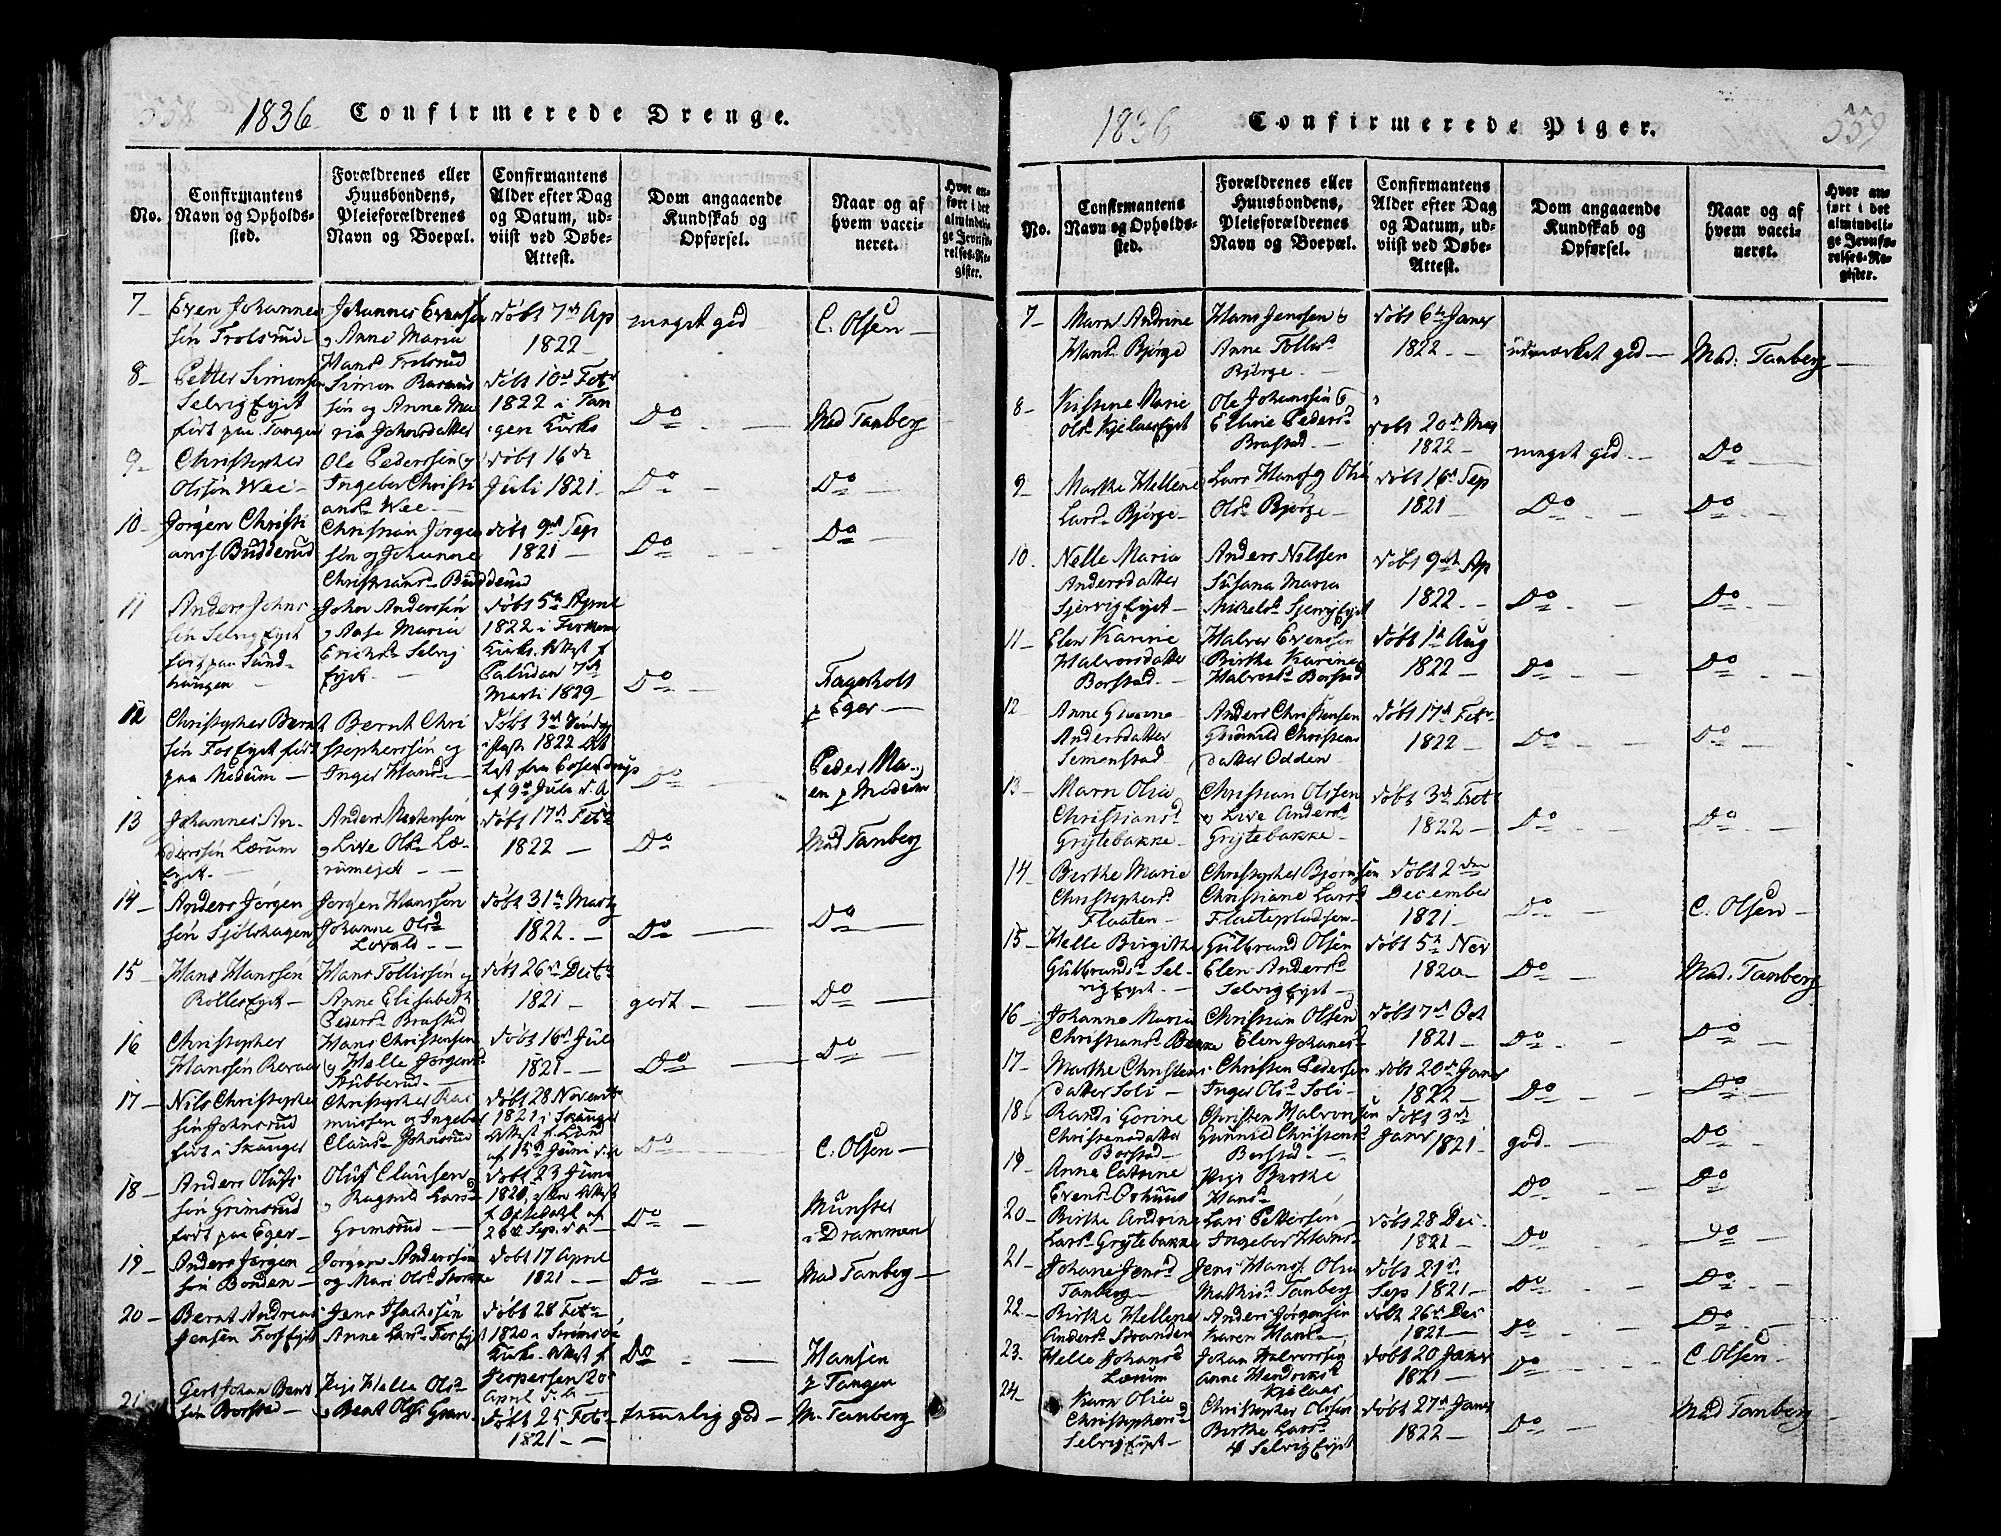 558
1836 Confirmerede Drenge.
No.
Confirmantens
Navn og Opholds-
sted.
Forældrenes eller
Huusbondens,
Pleieforældrenes
Navn og Boepæl.
Confirmantens
Alder efter Dag
og Datum, ud-
viist ved Døbe-
Attest.
Dom angaaende
Kundskab og
Opførsel.
Naar og af
hvem vacci-
neret.
Hvor an-
ført i det
almindeli-
ge Jevnfø-
relses-Re-
gister.
7 -
Even Johannes
sön
Johannes Evensen
og Anne Maria
Hansd
døbt 7de Ap
1822 -
meget god
C. Olsen -
8 -
Petter Simensen
Selvig Eyet
født paa Tangen
Simon Rasmus
sön og Anne Ma
ria Johnsdatter
døbt 10de Febr
1822 i Tan
gen Kirke
Do -
Mad Tanberg
9 -
Christopher
Olssön Wee -
Ole Pederssön og
Ingeber Christi
ansd Wee -
døbt 16de
Juli 1821 -
Do -
Do -
10 -
Jörgen Christi
ans Budderud
Christian Jörgen
sön og Johanne
Christiansd Budderud
døbt 9de Sep
1821 -
Do -
Do -
11
Anders Johns
sön Selvig Eyet
født paa Sand-
haugen -
John Anderssön
og Aase Maria
Erichsd Selvig
Eyet -
døbt 5te April
1822 i
Kirke. Attest f
Paludan 7de
Marti 1829 -
Do -
Fagerholt
p Eger -
12
Christopher Bernt
sön Fos Eyet født
paa Medum -
Bernt Chri
stopherssön og
Inger Hansd -
døbt 3de
1822
af 9de Juli
Do -
Peder Ma-
en p Medum
13
Johannes An-
derssön Lærum
Eyet. -
Anders
og Live Olsd Læ-
rumeiet -
døbt 17de Feb
1822 -
Do
Mad Tanberg
14 -
Anders Jörgen
sön Sjölshagen
Jörgen Hanssön
Johanne Olsd
døbt 31te Marty
1822. -
Do -
Do -
15
Hans Hanssen
Rolles Eyet -
Hans Tollissön og
Anne Elisabeth
Pedersd Brastad
døbt 26de Decbr
1821 -
godt -
Do -
16
Christopher
Hanssön
Hans Christensen
og Helle Jörgensd
Stubberud -
døbt 16de Jul
1821 -
Do -
Do -
17 -
Nils Christopher
sön Johnsrud
født i Skauger
Christopher Ras
mussen og Ingeber
Clausd Johnsrud
døbt 28 Novembr
1821 i Skauger
Attest f Lund
af 15de Juni d.A
Do -
C. Olsen -
18 -
Anders Olufs
sön Grimsrud
født paa Eger -
Oluf Clausen
og Ragnild Larsd
Grimsrud -
døbt 23 Juni
1820, Attest
af
26de Sep. d.A -
Do -
Münster
i Drammen
19 -
Anders Jörgen
sön Bonden -
Jörgen Anderssön
og Mari Olsd
døbt 17 April
1821 -
Do -
Mad Tanberg -
20 -
Bernt Andreas
Jensen Fos Eyet
Jens
Anne Larsd Fos Eyet
døbt 28 Feb
1820 i Strömsöe
Kirke. Attest f
Jespersen 20de
April d.A -
Do -
Hansen
p Tangen
21
Gert Johan Bernt
sön Borstad -
Pige Helle Olsd
og Bernt Ols
døbt 25 Feb
1821 -
temmelig god -
M. Tanberg -
1836 Confirmerede Piger. 559
No.
Confirmantens
Navn og Opholds-
sted.
Forældrenes eller
Huusbondens,
Pleieforældrenes
Navn og Boepæl.
Confirmantens
Alder efter Dag
og Datum, ud-
viist ved Døbe-
Attest.
Dom angaaende
Kundskab og
Opførsel.
Naar og af
hvem vacci-
neret.
Hvor an-
ført i det
almindeli-
ge Jevnfø-
relses-Re-
gister.
7 -
Marn Andrine
Hansd Bjørge
Hans Jenssen og
Anne Tollisd
Bjørge -
døbt 6te Janr
1822 -
udmærket god -
Mad. Tanberg -
8 -
Kistine Marie
Olsd Kjelaas Eyet
Ole Johanssön og
Eline Pedersd
Brastad -
døbt 20de Mar
1822 -
meget god -
Do -
9 -
Marthe Hellene
Larsd Bjørge -
Lars Hans og Olia
Olsd Bjørge -
døbt 16de Sep
1821 -
Do -
Do -
10.
Nelle Maria
Andersdatter
Sjervig Eyet -
Anders Nilssen
Susana Maria
Michelsd Sjervig Eyet
døbt 9de Ap
1822 -
Do -
Do -
11 -
Elen Karine
Halvorsdatter
Borstad -
Halvor Evenssen
Birthe Karine
Halvorsd Borstad
døbt 1te Aug
1822 -
Do -
Do -
12
Anne
Andersdatter
Semenstad
Anders Christensen
Gunnild Christens
datter Odden
døbt 17de Feb
1822 -
Do -
Do -
13 -
Marn Olia
Christiansd
Grytebakke -
Christian Olssen
og Live Andersd
Grytebakke -
døbt 3de Feb
1822 -
Do -
Do -
14
Berthe Marie
Christophersd
Flaaten -
Christopher Bjørnsen
Christiane Larsd
Flaatepladsen -
døbt 2den
December
1821 -
Do -
C. Olsen -
15 -
Helle Birgithe
Gulbrandsd Sel-
vig Eyet -
Gulbrand Olsen
Elen Andersd
Selvig Eyet -
døbt 5te Nov
1820 -
Do -
Mad. Tanberg
16 -
Johanne Maria
Christiansd Bakke
Christian Olsen
Elen Johanesd
døbt 7de Oct
1821 -
Do -
Do -
17 -
Marthe Christens
datter Soli -
Christen Pedersen
Inger Olsd Soli -
døbt 20de Janr
1822 -
Do -
Do -
18
Randi Gorine
Christensdatter
Borstad -
Christen Halvorsen
Gunnild Christensd
Borstad -
døbt 3de
Janr 1821
god -
Do -
19
Anne Catrine
Evensd
Pige Berthe
Hansd
Do -
Do -
20 -
Birthe Andrine
Larsd Grytebakke
Lars Petterssön -
Ingeber Hansd
døbt 28 Dec.
1821 -
Do -
Do -
21 -
Johane Jensd
Tanberg -
Jens Hans. Olia
Mathisd Tanberg
døbt 29de
Sep 1821 -
Do -
Do -
22 -
Birthe Hellene
Andersd Stranden
Anders Jörgensön
Karen Hansd -
døbt 26de Dec
1821 -
Do -
Do -
23.
Helle Johansd
Lærum
Johan Halvorssen
Anne Hendriksd
Kjelaas
døbt 20 Janr
1821 -
Do -
C Olsen -
24 -
Karn Olia
Christophersd
Selvig Eyet -
Christopher Olssen
Birthe Larsd
Selvig Eyet
døbt 27de Janr
1822 -
Do -
Mad Tanberg -